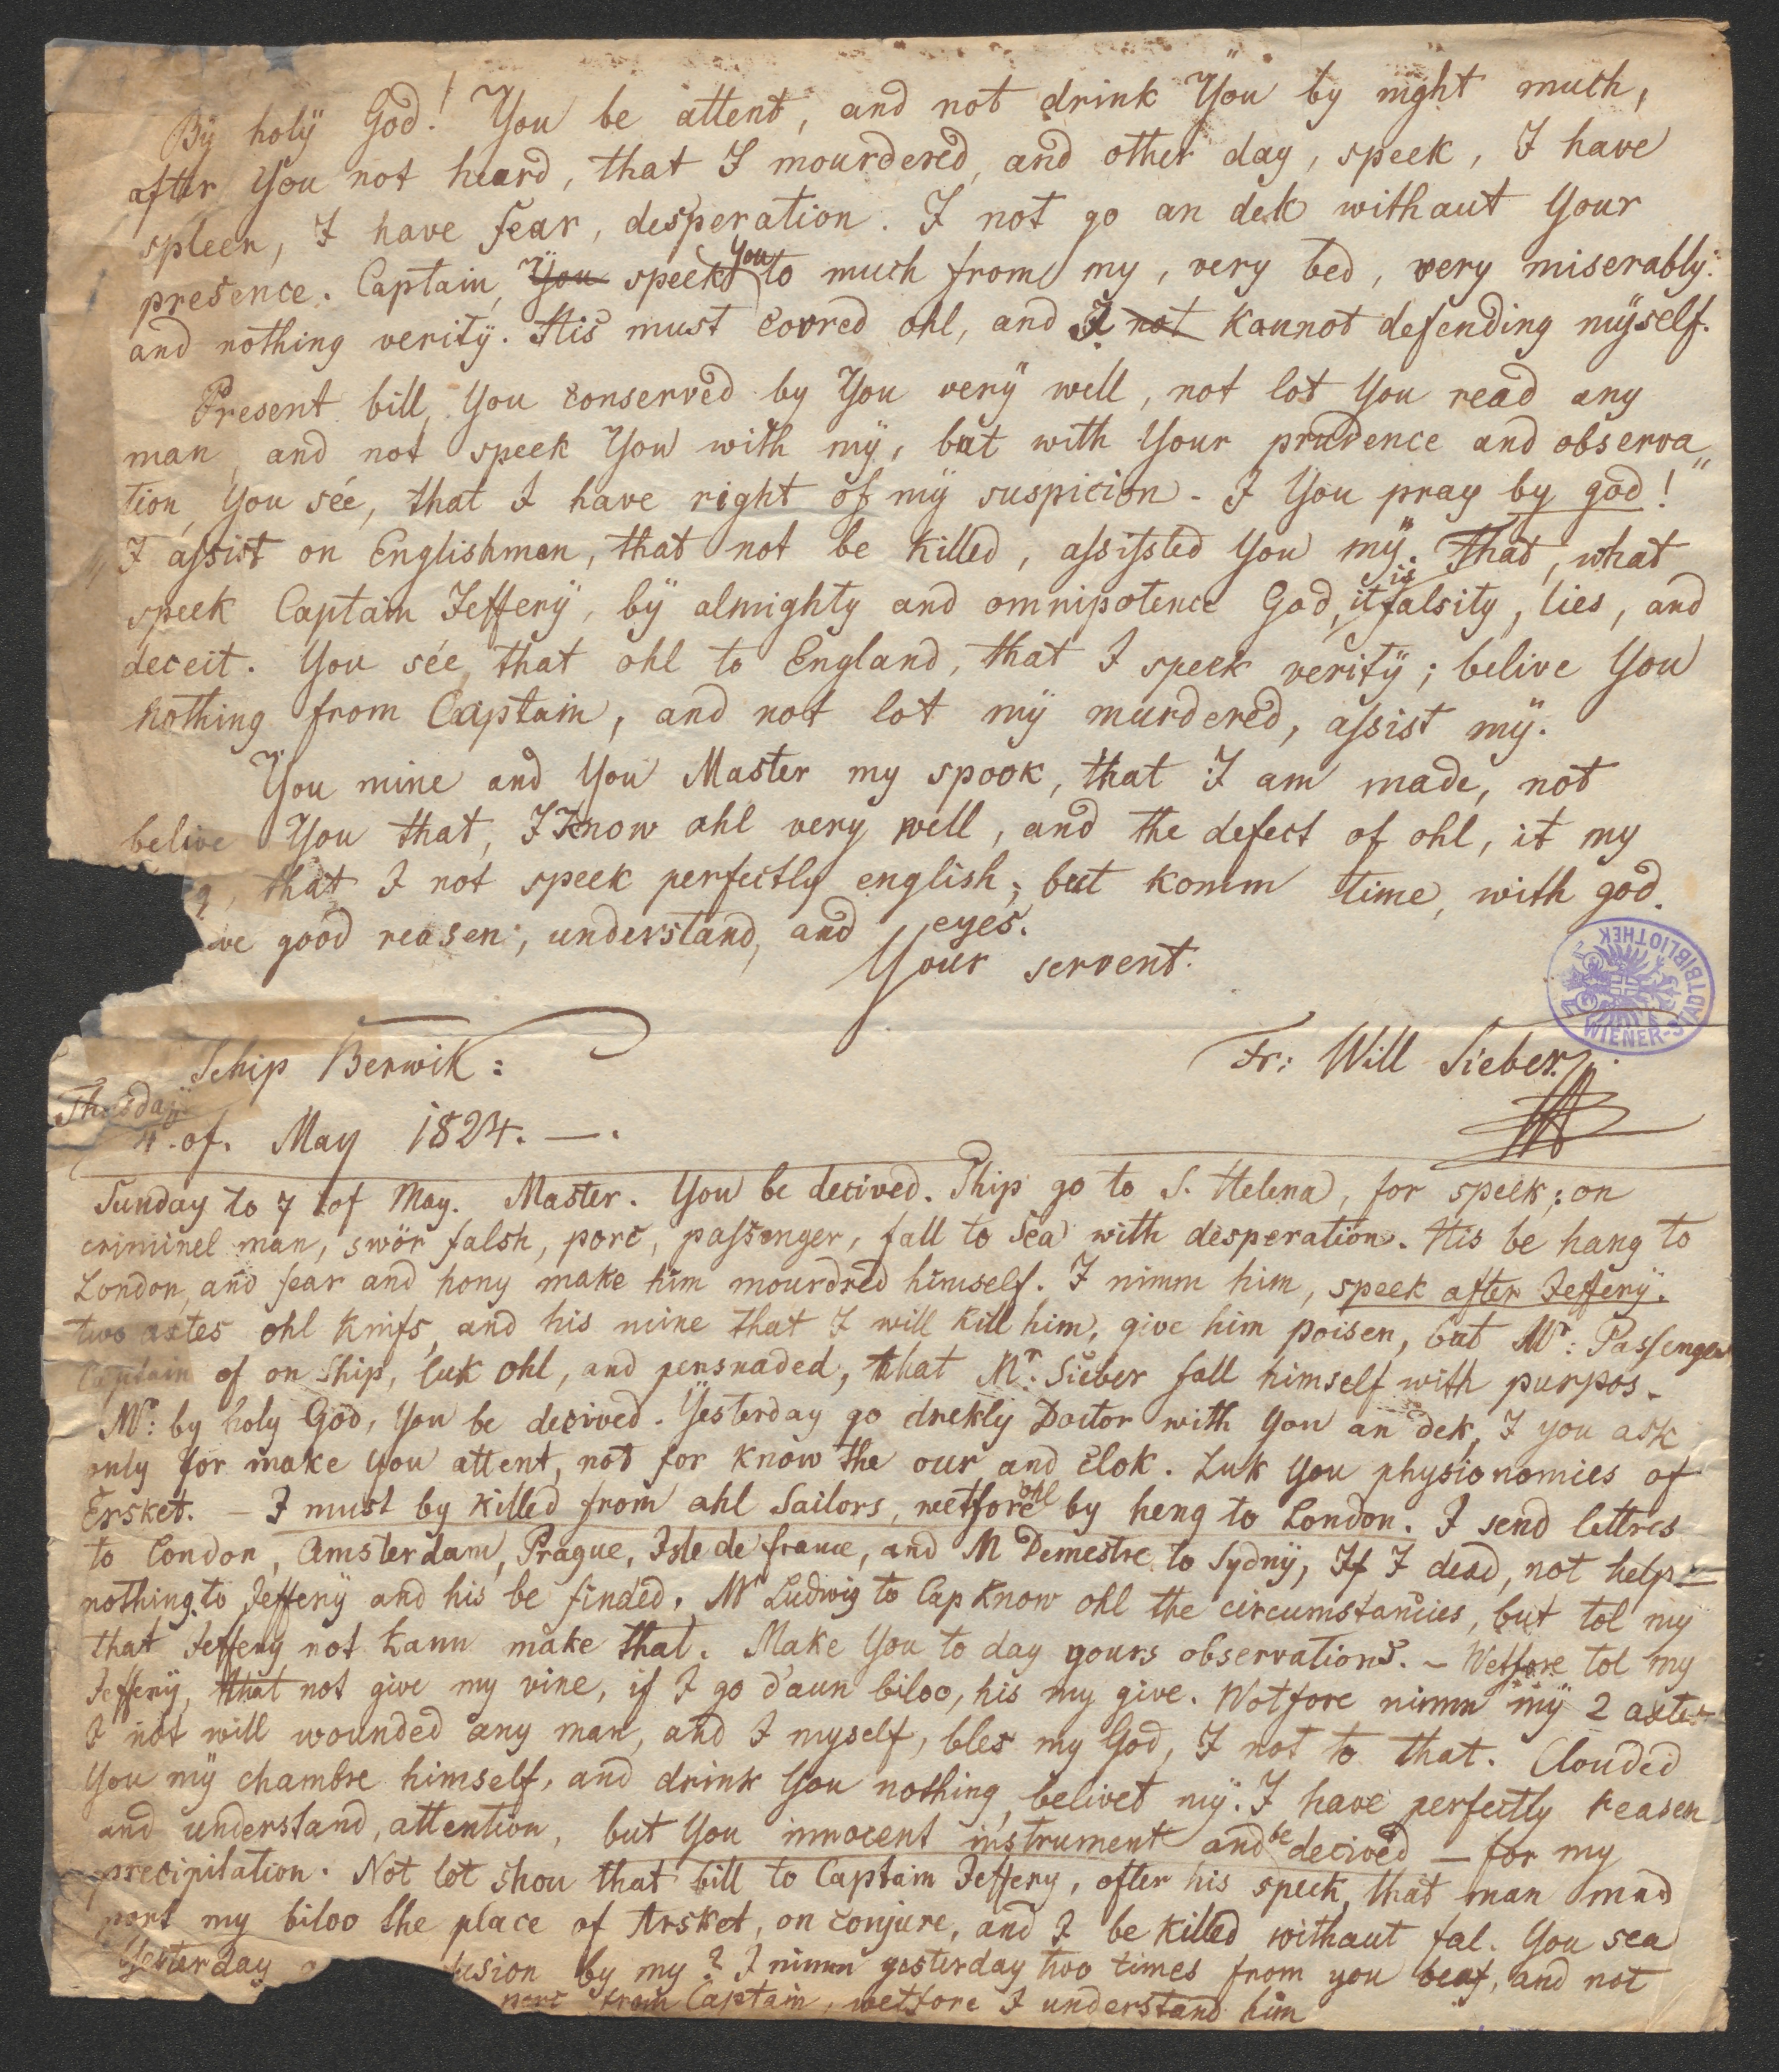 By holÿ God! You be attent, and not drink Ÿou by night much,
after You not heard, that I mourdered, and other day, speek, I have
spleen, I have fear, desperation. I not go an dek withaut Your
presence. Captain, You speek You to much from my, very bed, very miserably:
and nothing veritÿ. His must covred ohl, and I not kannot defending mÿself.
Present bill, You conserved by You verÿ well, not lot You read any
man, and not speek You with mÿ, but with Your prudence and observa
tion, You sée, that I have right of mÿ suspicion - I You pray by god!
"I assist on Englishmen, that not be killed, assissted You mÿ." That, what
speek Captain Jefferÿ, bÿ almighty and omnipotence God, it is falsity, lies, and
deceit. You sée, that ohl to England, that I speek veritÿ; belive You
nothing from Captain, and not lot mÿ murdered, assist mÿ.
You mine and You Master my spook, that I am made, not
belive You that, I Know ohl very well, and the defect of ohl, it my
that I not speek perfectly english; but komm time, with god.
ve good reasen, understand, and eyes.
Your servent.
WIENER-STADTBIBLIOTHEK
Schip Berwik:
Fr: Will Sieber
Thusdaÿ
4. of. May 1824. —.
Sunday to 7 of May. Master. You be decived. Ship go to S. Helena, for speek; on
criminel man, swör falsh, porc, passenger, fall to Sea with desperation. His be hang to
London, and fear and hony make him mourdred himself. I nimm him, speek after Jefferÿ.
two axtes ohl knifs, and his mine that I will kill him, give him poisen, but Mr: Passenger
Captain of on Ship, luk ohl, and persuaded, that Mr: Sieber fall himself with purpos.
Mr: by holy God, You be decived. Yesterday go drekly Doctor with You an dek, I you ask
only for make you attent, not for know the our and clok. Luk You physionomies of
Ersket. - I must by killed from ahl Sailors, wetfore ohl by heng to London. I send lettres
to London, Amsterdam, Prague, Isle de france, and M Demestre to Sydnÿ, If I dead, not help
nothing to Jefferÿ and his be finded. Mr Ludwig to Cap know ohl the circumstancies, but tol my
that Jeffery not kann make that. Make You to day yours observations. - Wetfore tol my
Jefferÿ, that not give my vine, if I go daun biloo, his my give. Wotfore nimm mÿ 2 axtes
I not will wounded any man, and I myself, bles my God, I not to that. Clouded
You mÿ chambre himself, and drink You nothing, belivet mÿ. I have perfectly reasen
and understand, attention, but You innocent instrument and be decived — for my
precipitation. Not lot shou that bill to Captain Jeffery, ofter his speek, that man mad
port my biloo the place of Arsket, on conjure, and I be killed withaut fal. You sea
Yesterday usion by my? I nimm yesterday two times from you beaf, and not
from Captain, wetfore I understand him